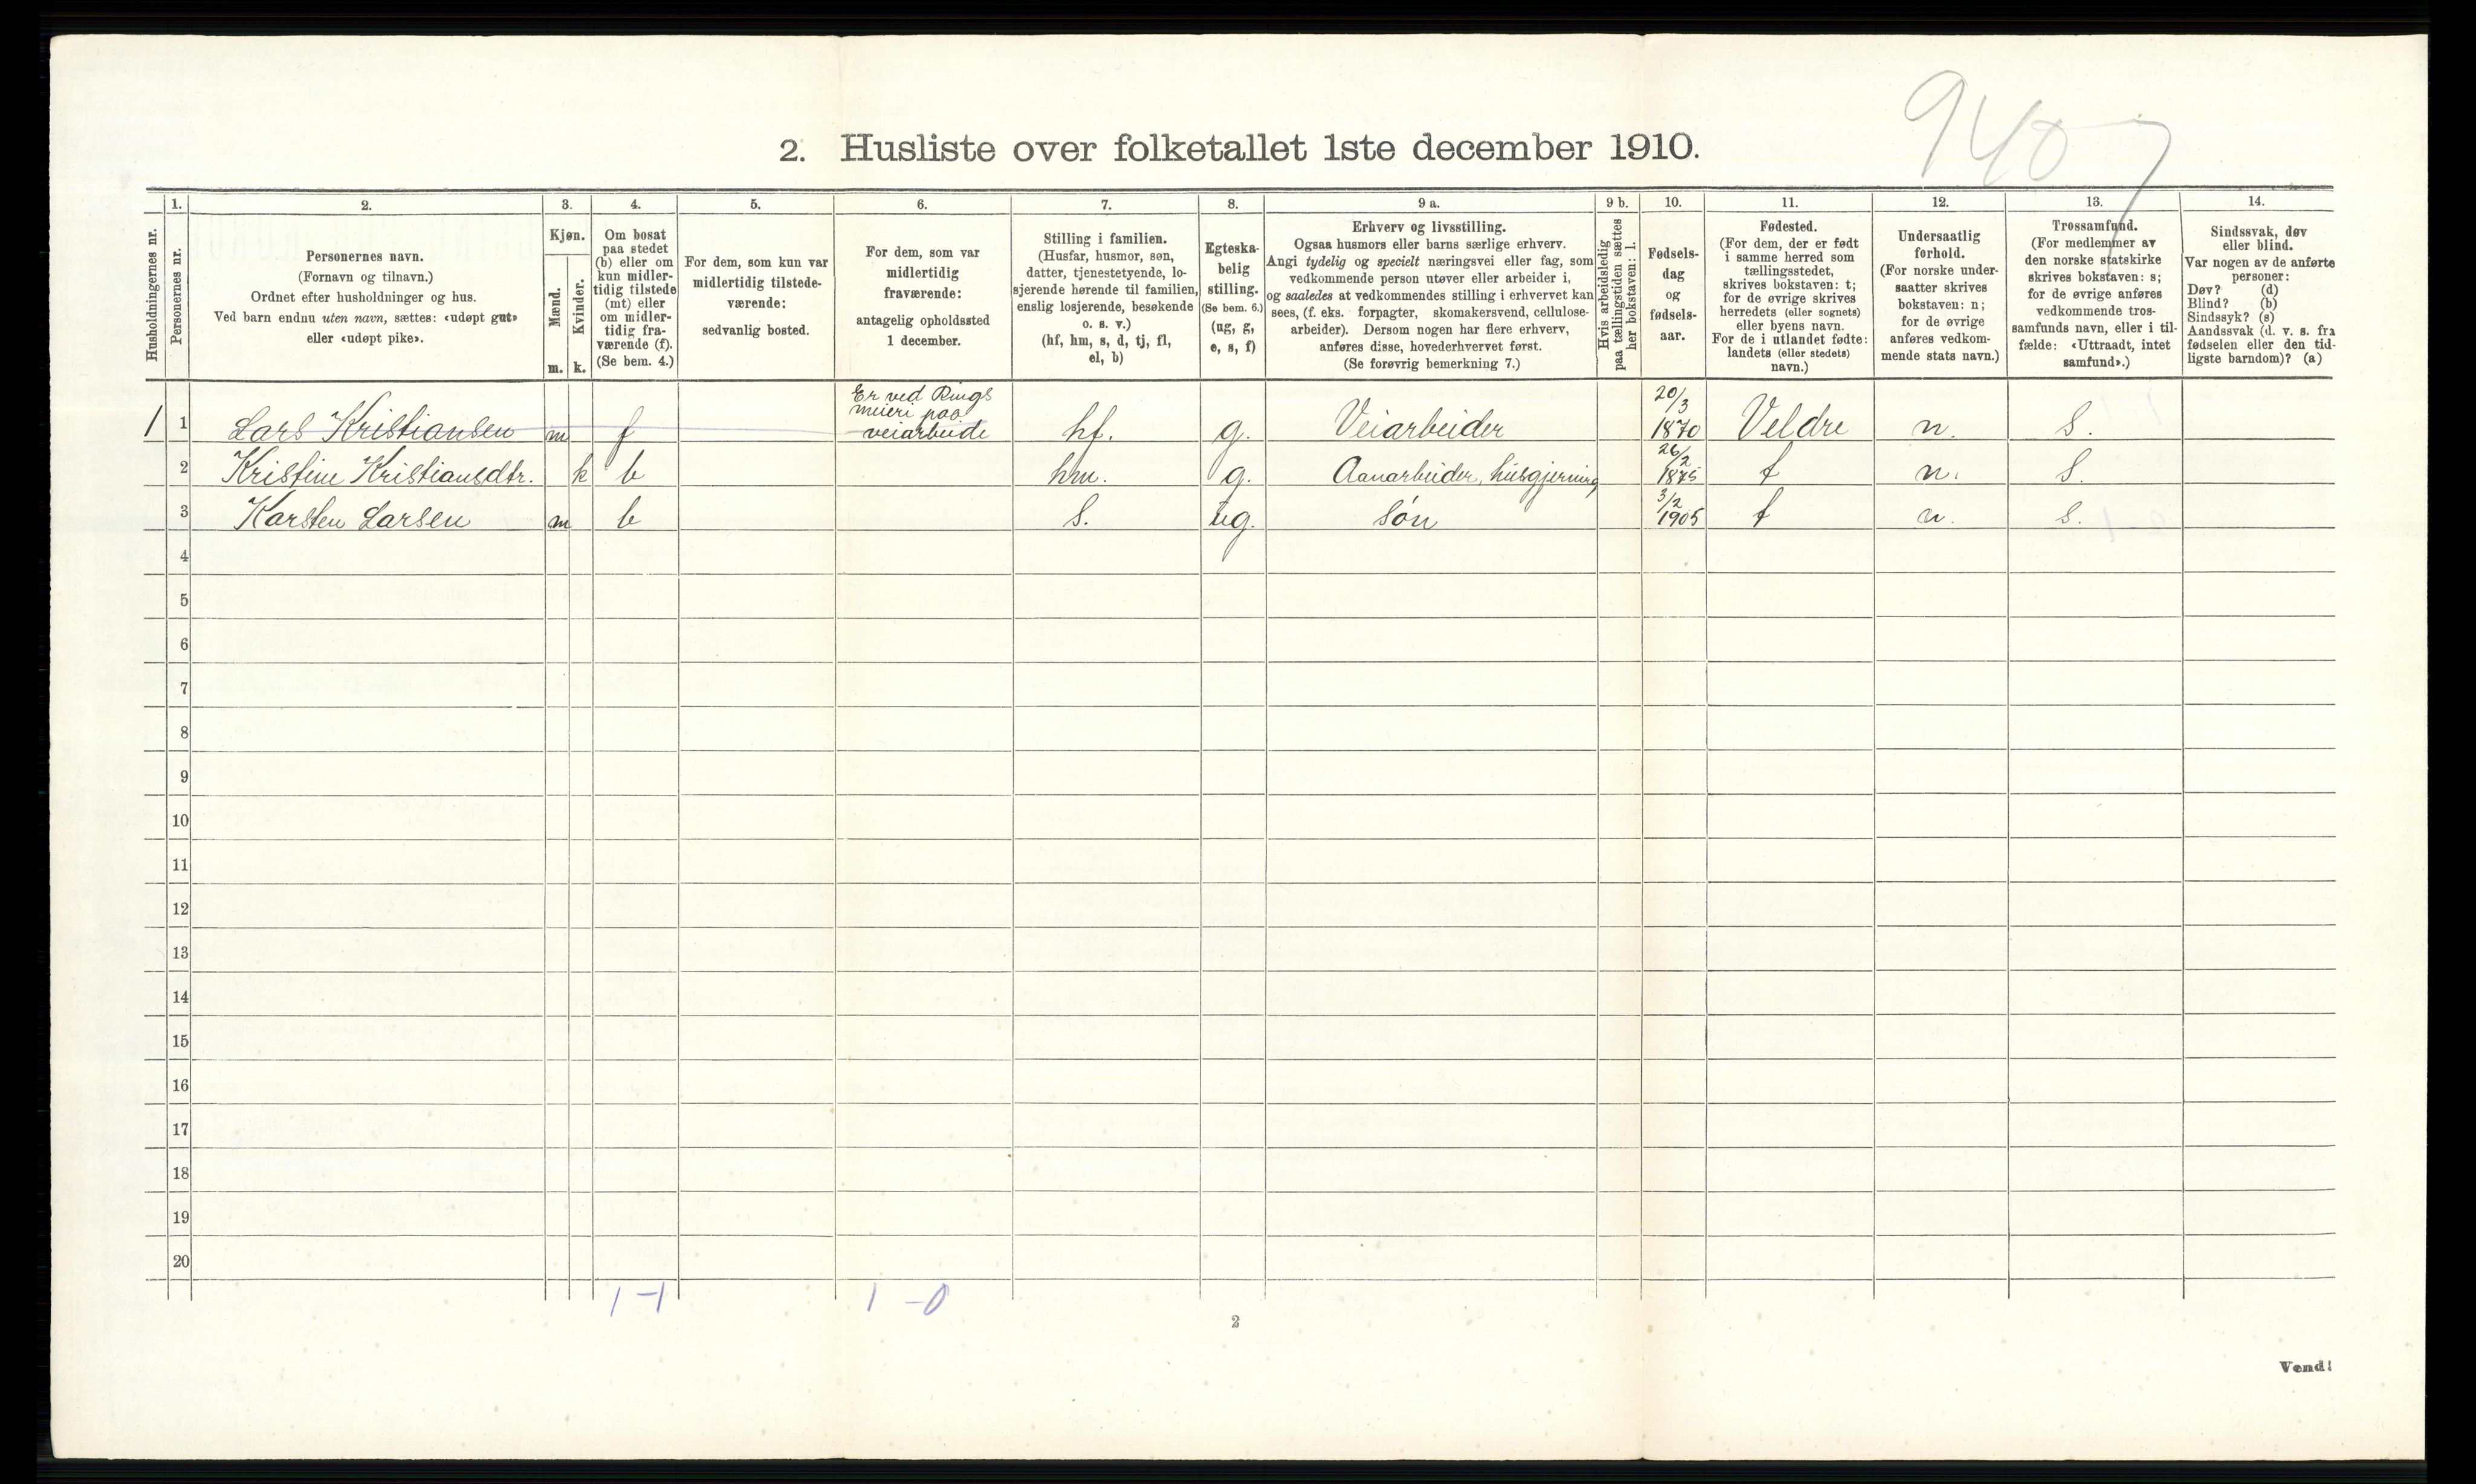 9407
2. Husliste over folketallet 1ste december 1910.
Husholdningernes nr.
1.
Personernes nr.
2.
Personernes navn.
(Fornavn og tilnavn.)
Ordnet efter husholdninger og hus.
Ved barn endnu uten navn, sættes: «udøpt gut»
eller «udøpt pike».
3.
Kjøn.
Mænd.
m.
Kvinder.
k.
4.
Om bosat
paa stedet
(b) eller om
kun midler-
tidig tilstede
(mt) eller
om midler-
tidig fra-
værende (f).
(Se bem. 4.)
5.
For dem, som kun var
midlertidig tilstede-
værende:
sedvanlig bosted.
6.
For dem, som var
midlertidig
fraværende:
antagelig opholdssted
1 december.
7.
Stilling i familien.
(Husfar, husmor, søn,
datter, tjenestetyende, lo-
sjerende hørende til familien,
enslig losjerende, besøkende
o. s. v.)
(hf, hm, s, d, tj, fl,
el, b)
8.
Egteska-
belig
stilling.
(Se bem. 6.)
(ug, g,
e, s, f)
9 a.
Erhverv og livsstilling.
Ogsaa husmors eller barns særlige erhverv.
Angi tydelig og specielt næringsvei eller fag, som
vedkommende person utøver eller arbeider i,
og saaledes at vedkommendes stilling i erhvervet kan
sees, (f. eks. forpagter, skomakersvend, cellulose-
arbeider). Dersom nogen har flere erhverv,
anføres disse, hovederhvervet først.
(Se forøvrig bemerkning 7.)
9 b.
Hvis arbeidsledig
paa tællingstiden sættes
her bokstaven: l.
10.
Fødsels-
dag
og
fødsels-
aar.
11.
Fødested.
(For dem, der er født
i samme herred som
tællingsstedet,
skrives bokstaven: t;
for de øvrige skrives
herredets (eller sognets)
eller byens navn.
For de i utlandet fødte:
landets (eller stedets)
navn.)
12.
Undersaatlig
forhold.
(For norske under-
saatter skrives
bokstaven: n;
for de øvrige
anføres vedkom-
mende stats navn.)
13.
Trossamfund.
(For medlemmer av
den norske statskirke
skrives bokstaven: s;
for de øvrige anføres
vedkommende tros-
samfunds navn, eller i til-
fælde: «Uttraadt, intet
samfund».)
14.
Sindssvak, døv
eller blind.
Var nogen av de anførte
personer:
Døv? (d)
Blind? (b)
Sindssyk? (s)
Aandssvak (d. v. s. fra
fødselen eller den tid-
ligste barndom)? (a)
1 1 Lars Kristiansen m f Er ved Rings
meieri paa
veiarbeide hf. g. Veiarbeider 20/3
1870 Veldre n. s.
2 Kristine Kristiansdtr. k b hm. g. Aanarbeider, husgjerning 26/2
1875 t n. s.
3 Karsten Larsen m b s. ug. søn 3/2
1905 t n. s.
4
5
6
7
8
9
10
11
12
13
14
15
16
17
18
19
20
1-1 1-0
2
Vend!